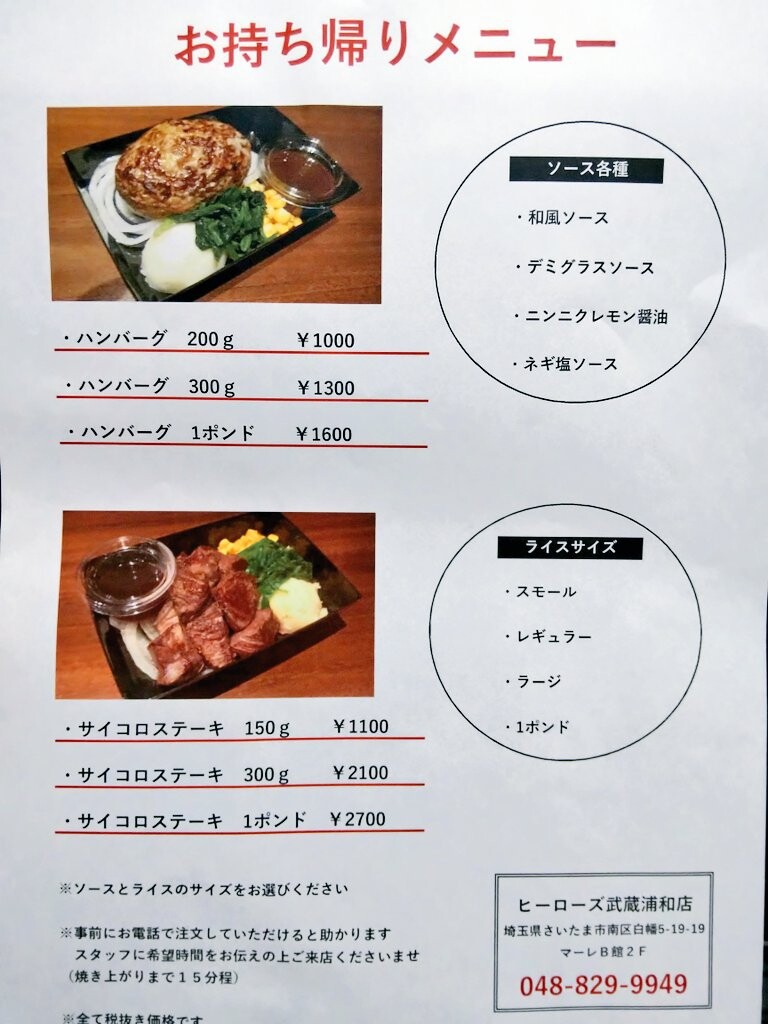 お持ち帰りメニュー
・ハンバーグ 200g ￥1000
・ハンバーグ 300g ￥1300
・ハンバーグ 1ポンド ￥1600
ソース各種
・和風ソース
・デミグラスソース
・ニンニクレモン醤油
・ネギ塩ソース
・サイコロステーキ 150g ￥1100
・サイコロステーキ 300g ￥2100
・サイコロステーキ 1ポンド ￥2700
ライスサイズ
・スモール
・レギュラー
・ラージ
・1ポンド
※ソースとライスのサイズをお選びください
※事前にお電話で注文していただけると助かります
スタッフに希望時間をお伝えの上ご来店くださいませ
（焼き上がりまで１５分程）
※全て税抜き価格です
ヒーローズ武蔵浦和店
埼玉県さいたま市南区白幡5-19-19
マーレＢ館２Ｆ
048-829-9949